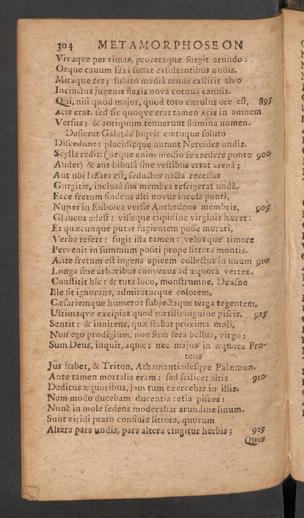 304 METAMORPHOSEON
Vivaque per rimas, proceraque surgit arundo:
Osque cavum saxi sonat exsultantibus undis.
Miraque res; subito media tenus exstitit alvo
Incinctus juvenis flexis nova cornua cannis.
Qui, nisi quod major, quod toto cærulus ore est, 895
Acis erat. sed sic quoque erat tamen Acis in amnem
Versus; & antiquum tenuerunt flumina nomen.
Desierat Galatea loqui: cœtuque soluto
Discedunt: placidisque natant Nereides undis.
Scylla redit: (neque enim medio se credere ponto 900
Audet) & aut bibula sine vestibus errat arena;
Aut ubi lassata est, seductos nacta recessus
Gurgitis, inclusa sua membra refrigerat unda.
Ecce fretum findens alti novus incola ponti,
Nuper in Euboica versis Anthedone membris, 905
Glaucus adest: visæque cupidine virginis hæret:
Et quæcunque putat fugientem posse morari,
Verba refert: fugit illa tamen: veloxque timore
Pervenit in summum positi prope littora montis.
Ante fretum est ingens apicem collectus in unum 910
Longa sine arboribus convexus ad æquora vertex.
Constitit hic: & tuta loco, monstrumne, Deusne
Ille sit ignorans, admiraturque colorem,
Cæsariemque humeros subjectaque terga tegentem,
Ultimaque excipiat quod tortilis inguine piscis. 915
Sentit: & innitens, quæ stabat proxima moli,
Non ego prodigium, non sum fera bellua, virgo;
Sum Deus, inquit, aquæ; nec majus in æquora Pro-
teus
Jus habet, & Triton, Athamantiadesque Palæmon.
Ante tamen mortalis eram: sed scilicet altis 920
Deditus æquoribus, jam tum exercebar in illis.
Nam modo ducebam ducentia retia pisces:
Nunc in mole sedens moderabar arundine linum.
Sunt viridi prato confinia littora, quorum
Altera pars undis, pars altera cingitur herbis; 925